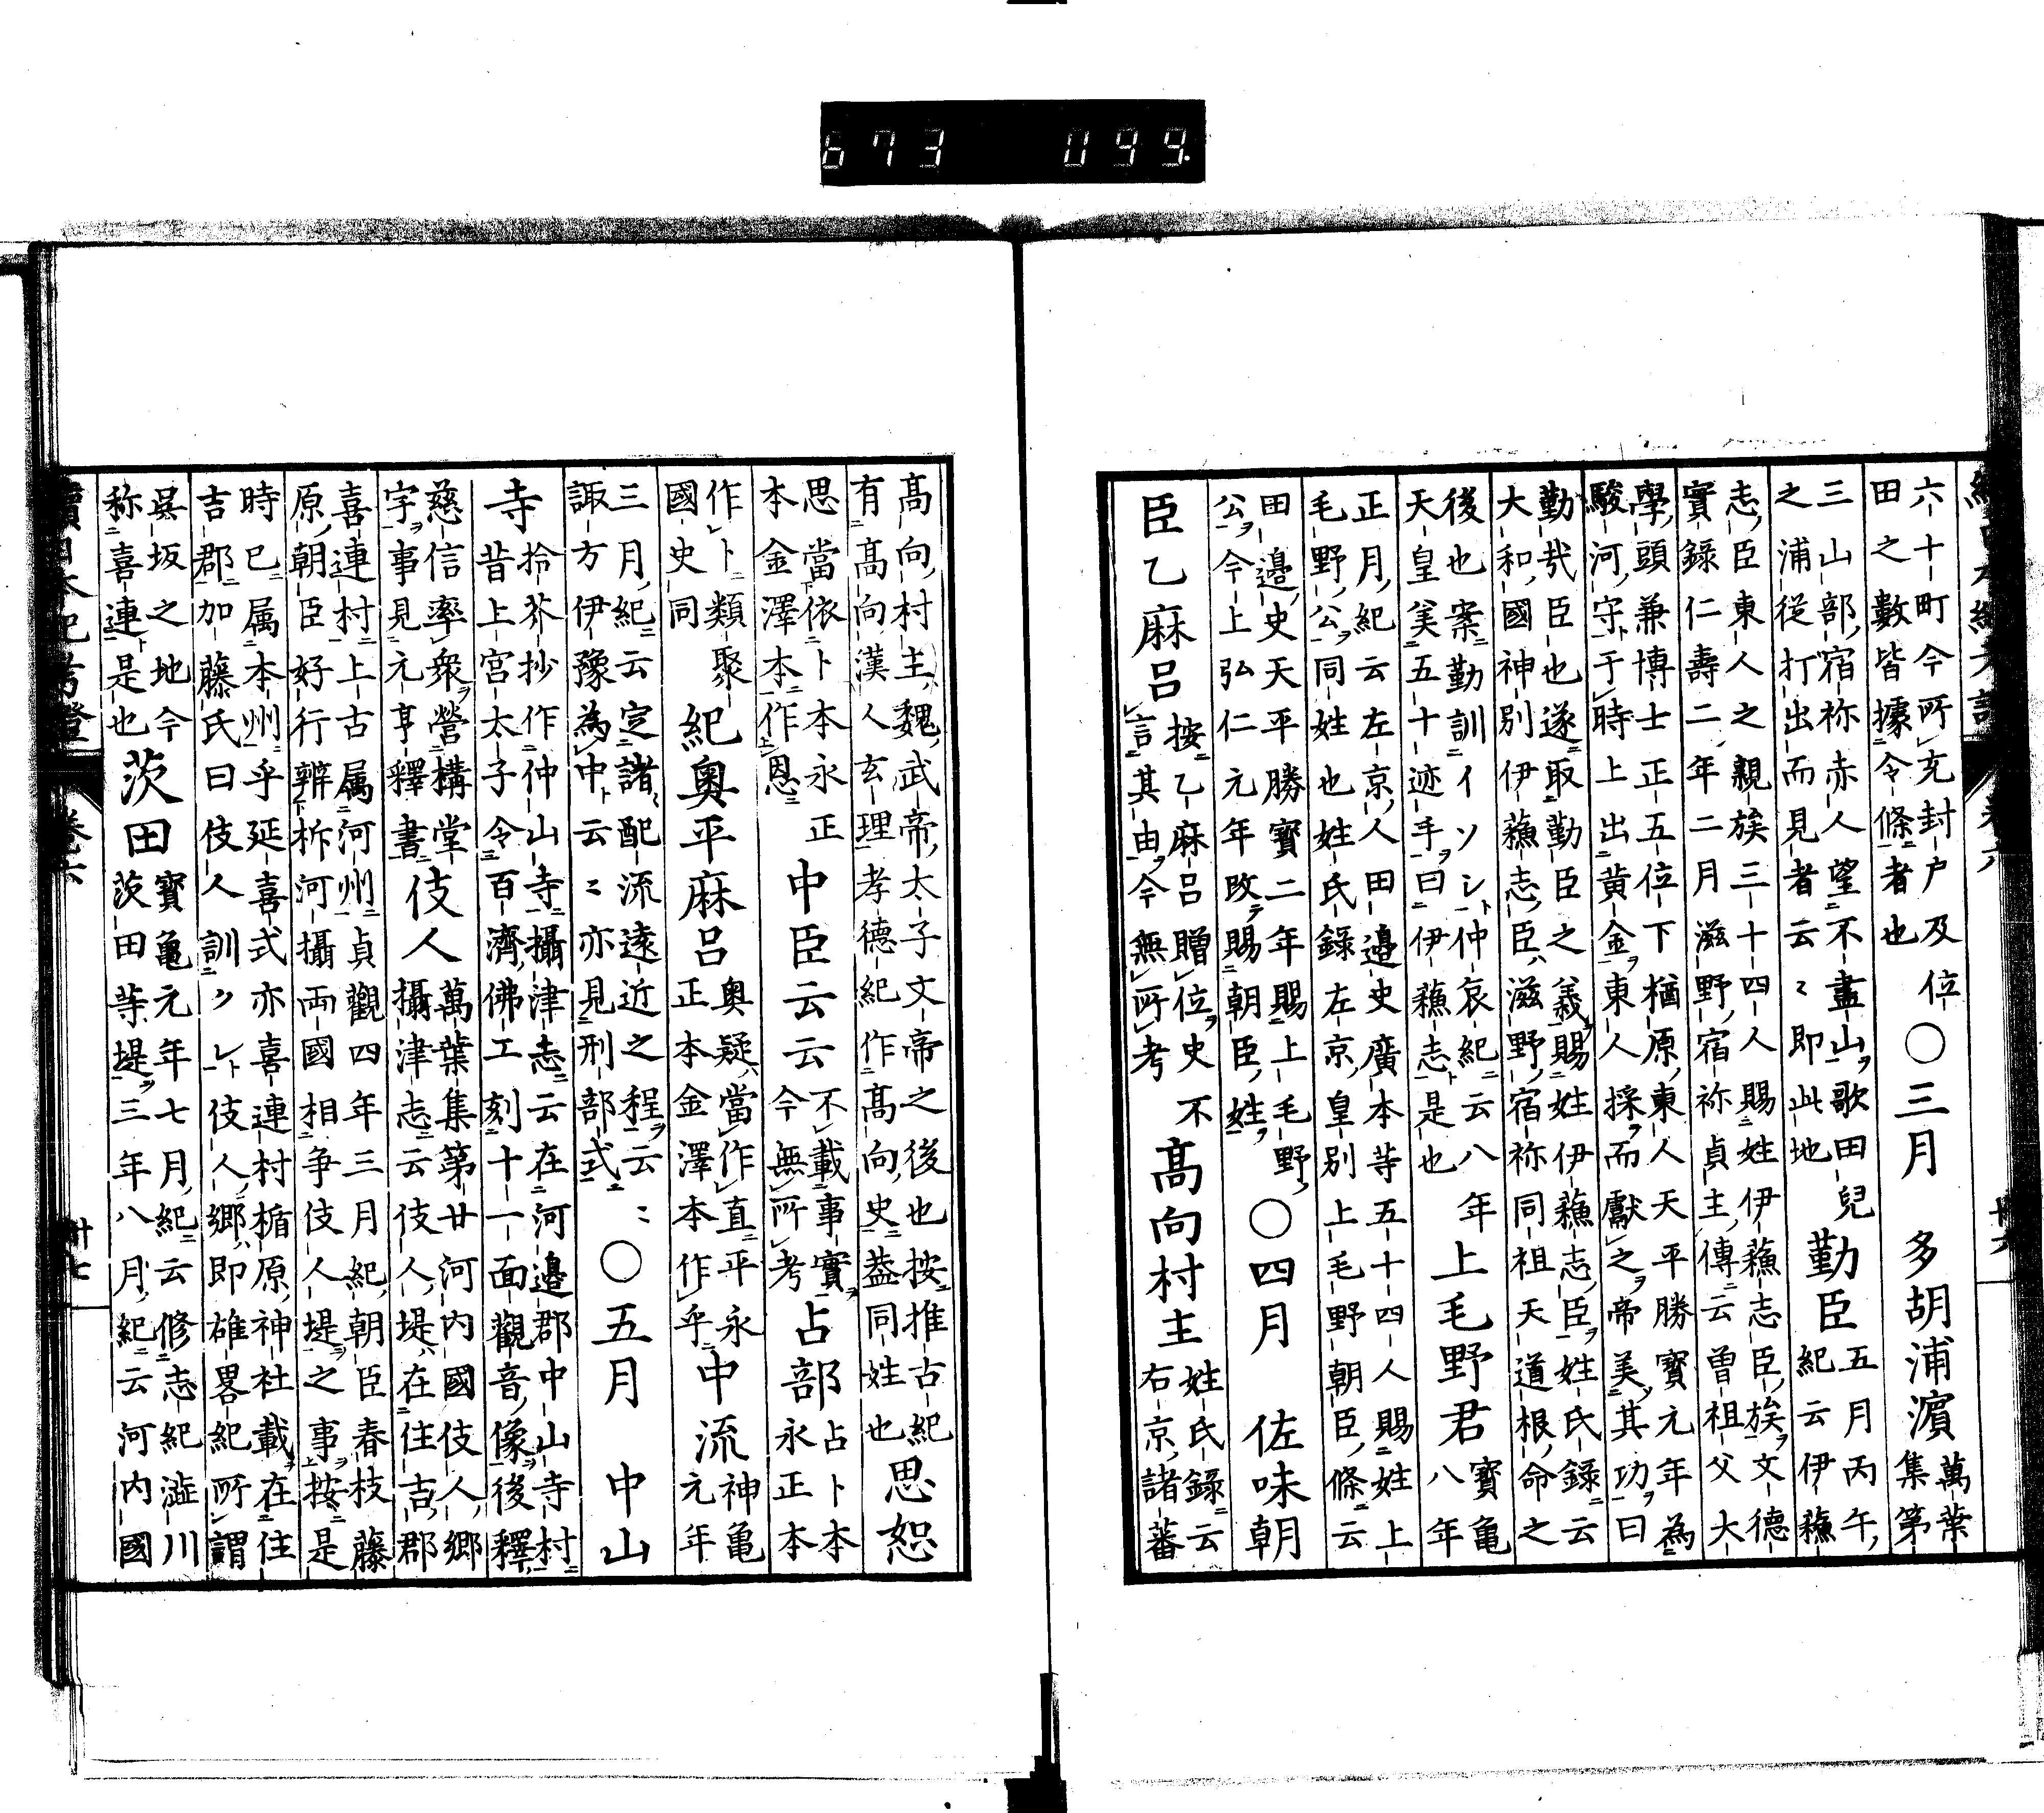 673 099
六十町今所充封户及位
田之數皆據令條者也
〇三月 多胡浦濵
萬葉
集第
三山部宿祢赤人望不盡山歌田兒
之浦從打出而見者云〻即此地
勤臣
五月丙午
紀云伊蘓
志臣東人之親族三十四人賜姓伊蘓志臣族文德
實錄仁壽二年二月滋野宿祢貞主傳云曽祖父大
學頭兼博士正五位下楢原東人天平勝寳元年為
駿河守于時上出黄金東人採而獻之帝美其功曰
勤哉臣也遂取勤臣之義賜姓伊蘓志臣姓氏錄云
大和國神別伊蘓志臣滋野宿祢同祖天道根命之
後也案勤訓イソシ仲哀紀云八年
天皇美五十迹手曰伊蘓志是也
上毛野君
寳亀
八年
正月紀云左京人田邉史廣本等五十四人賜姓上
毛野公同姓也姓氏錄左京皇別上毛野朝臣條云
田邉史天平勝寳二年賜上毛野
公今上弘仁元年改賜朝臣姓
〇四月 佐味朝
臣乙麻呂
按乙麻呂贈位史不
言其由今無所考
髙向村主
姓氏錄云
右京諸蕃
髙向村主魏武帝太子文帝之後也按推古紀
有髙向漢人玄理孝德紀作髙向史葢同姓也
思恕
思當依卜本永正
本金澤本作恩
中臣云云
不載事實
今無所考
占部
占卜本
永正本
作卜類聚
國史同
紀奥平麻呂
奥疑當作直平永
正本金澤本作乎
中流
神亀
元年
三月紀云定諸配流逺近之程云〻
諏方伊豫為中云〻亦見刑部式
〇五月 中山
寺
拾芥抄作仲山寺攝津志云在河邉郡中山寺村
昔上宮太子令百濟佛工刻十一面觀音像後釋
慈信率衆營構堂
宇事見元亨釋書
伎人
萬葉集第廿河内國伎人鄉
攝津志云伎人堤在住吉郡
喜連村上古属河州貞觀四年三月紀朝臣春枝藤
原朝臣好行辨析河攝両國相争伎人堤之事按是
時已属本州乎延喜式亦喜連村楯原神社載在住
吉郡加藤氏曰伎人訓クレ伎人鄉即雄畧紀所謂
吳坂之地今
称喜連是也
茨田
寳亀元年七月紀云修志紀澁川
茨田等堤三年八月紀云河内國
續日本紀考證
卷六
卅七